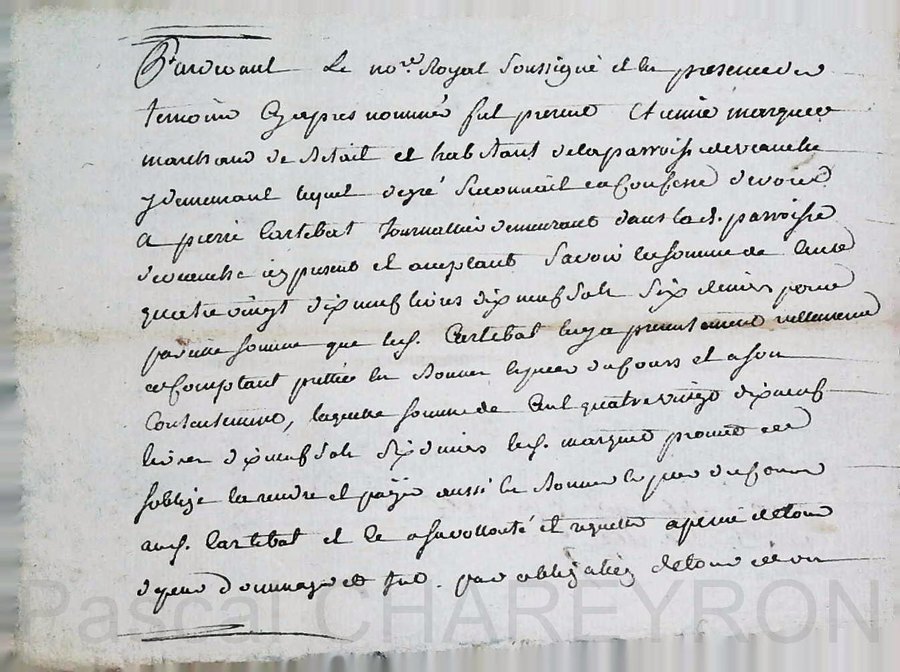 Pardevant Le no.re Royal Soussigné et en presence des
temoins Cy apres nommés fut present Etienne marques
marchand de detail et habitant de la parroisse
y demeurant lequel de gré Reconnait et Confesse devoir
a pierre Cartebat Journallier demeurant dans lad. parroisse
icy present et aceptant Savoir la somme de Cent
quatre vingt dix neuf livres dix neuf sols Six deniers
pareille somme que led. Cartebat luy a presentement reellement
et Comptant prettée en Bonnes especes de Cours et a son
Contentement, laquelle somme de Cent quatre vingt dix neuf
livres dix neuf sols Six deniers led. marques promet et
soblige la rendre et payer aussi en Bonnes especes de Cours
aud. Cartebat et a sa vollonté et requette a peine de tous
depens Domages et . par obligation de tous
Pascal CHAREYRON